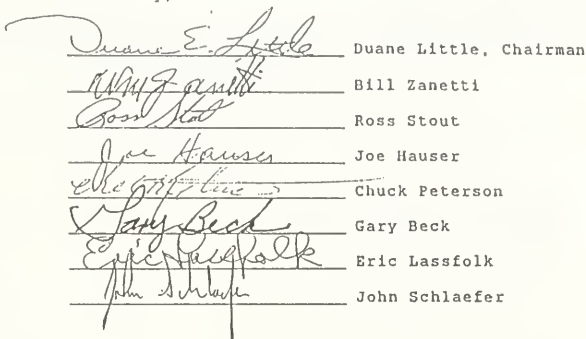 Duane E. Little Duane Little, Chairman
Bill Zanetti
Ross Stout Ross Stout
Joe Hauser Joe Hauser
Chuck Peterson
Gary Beck Gary Beck
Eric Lassfolk Eric Lassfolk
John Schlaefer John Schlaefer